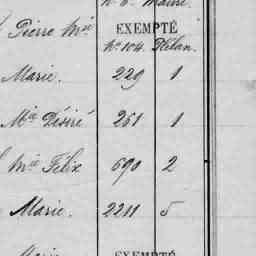 Pierre Mie EXEMPTÉ
No 104.
Marie. 229 1
Mie Désiré 261 1
Mie Félix 690 2
Marie. 2211 5
EXEMPTÉ